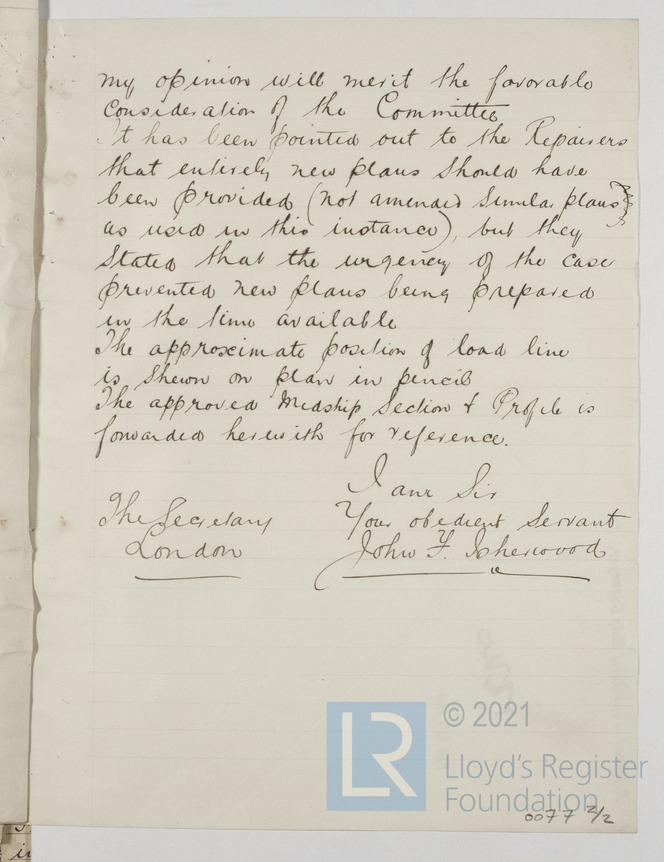 my opinion will merit the favorable
consideration of the Committee
It has been pointed out to the Repairers
that entirely new plans should have
been provided (not amended similar plans
as used in this instance), but they
stated that the urgency of the case
prevented new plans being prepared
in the time available
The approximate position of load line
is shewn on plan in pencil
The approved Midship Section & Profile is
forwarded herewith for reference.
I am Sir
The Secretary Your obedient Servant
London John F. Isherwood
© 2021
LR Lloyd's Register
Foundation
0077 2/2